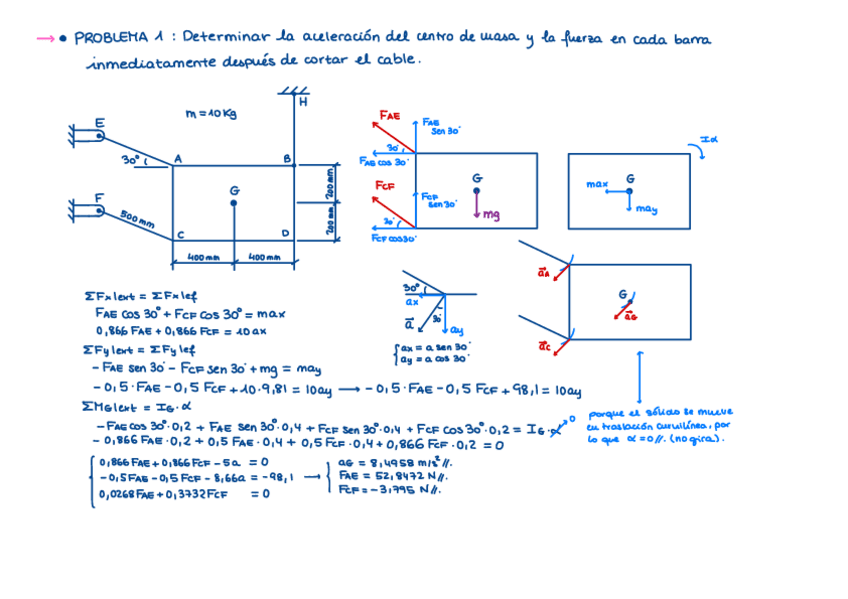 → • PROBLEMA 1 : Determinar la aceleración del centro de masa y la fuerza en cada barra
inmediatamente después de cortar el cable.
H
m = 10 Kg
E
30°
A
B
F
500mm
G
C
D
200mm
200mm
400mm
400mm
FAE
FAE
Sen 30°
30°
FAE cos 30°
FCF
FCF
sen 30°
30°
FCF cos30°
G
mg
Iα
G
max
may
30°
ax
a
30°
ay
{ ax = a sen 30°
ay = a cos 30°
aA
G
aG
aC
ΣFx]ext = ΣFx]ef
FAE cos 30° + FCF cos 30° = max
0,866 FAE + 0,866 FCF = 10ax
ΣFy]ext = ΣFy]ef
- FAE sen 30° - FCF sen 30° + mg = may
- 0,5 · FAE - 0,5 FCF + 10 · 9,81 = 10ay → - 0,5 · FAE - 0,5 FCF + 98,1 = 10ay
ΣMG]ext = IG · α
- FAE cos 30° · 0,2 + FAE sen 30° · 0,4 + FCF sen 30° · 0,4 + FCF cos 30° · 0,2 = IG · α 0
- 0,866 FAE · 0,2 + 0,5 FAE · 0,4 + 0,5 FCF · 0,4 + 0,866 FCF · 0,2 = 0
porque el sólido se mueve
en traslación curvilínea, por
lo que α = 0//. (no gira).
0,866 FAE + 0,866 FCF - 5a = 0
- 0,5 FAE - 0,5 FCF - 8,66a = -98,1 →
0,0268 FAE + 0,3732 FCF = 0
aG = 8,4958 m/s²//.
FAE = 52,8472 N//.
FCF = -3,795 N//.